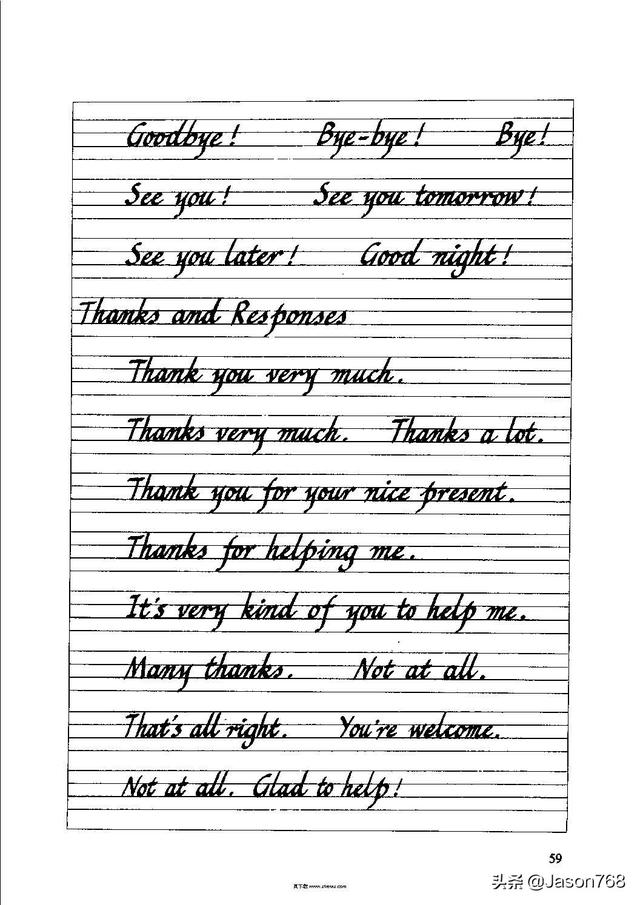 Goodbye! Bye-bye! Bye!
See you! See you tomorrow!
See you later! Good night!
Thanks and Responses
Thank you very much.
Thanks very much. Thanks a lot.
Thank you for your nice present.
Thanks for helping me.
It's very kind of you to help me.
Many thanks. Not at all.
That's all right. You're welcome.
Not at all. Glad to help!
59
头条 @Jason768